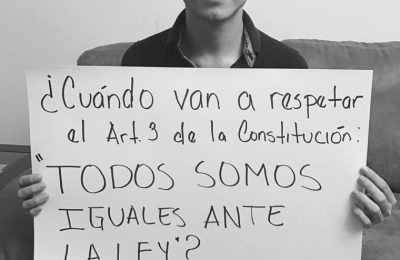 ¿Cuándo van a respetar
el Art. 3 de la Constitución:
"TODOS SOMOS
IGUALES ANTE
LA LEY"?